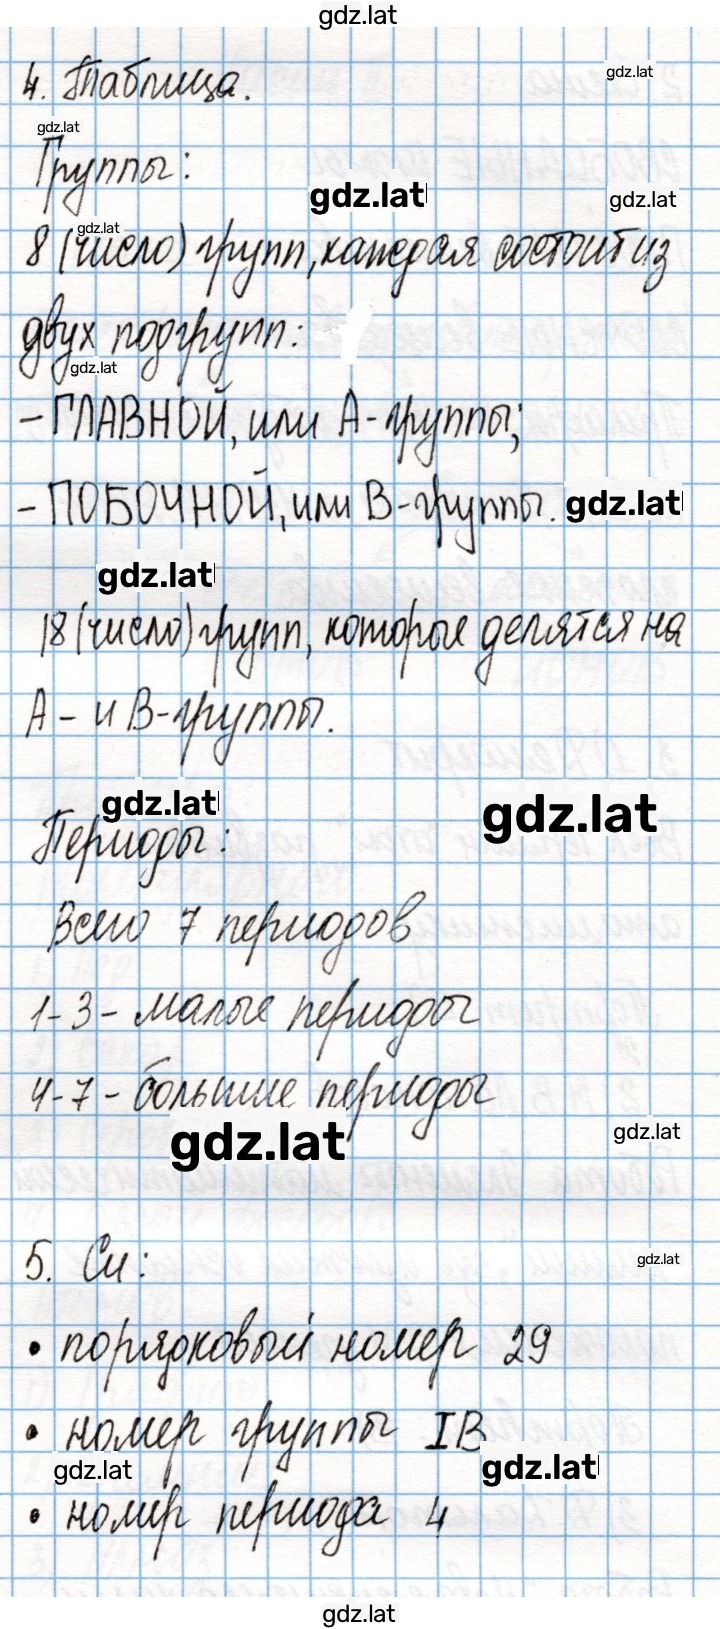 gdz.lat
4. Таблица.
gdz.lat
gdz.lat
Группы:
gdz.lat
gdz.lat
gdz.lat
8 (число) групп, каждая состоит из
двух подгрупп:
gdz.lat
- ГЛАВНОЙ, или А-группы;
- ПОБОЧНОЙ, или В-группы.
gdz.lat
gdz.lat
18 (число) групп, которые делятся на
А- и В-группы.
gdz.lat
gdz.lat
Периоды:
Всего 7 периодов
1-3 - малые периоды
4-7 - большие периоды
gdz.lat
gdz.lat
5. Cu:
gdz.lat
• порядковый номер 29
• номер группы IB
gdz.lat
gdz.lat
• номер периода 4
gdz.lat